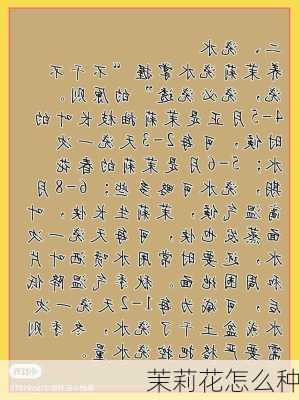 二、浇水
养茉莉浇水掌握“不干不
浇，浇必浇透”的原则。
4-5月正是茉莉抽枝长叶的
时候，可每2-3天浇一次
水；5-6月是茉莉的春花
期，浇水可略多些；6-8月
高温气候，茉莉生长快，叶
面蒸发也快，可每天浇一次
水，还要时常用水喷洒叶片
和周围地面。秋季气温降低
后，可减为每1-2天浇一次
水或盆土干了浇水，冬季则
需要严格把控浇水量。
茉莉花怎么种